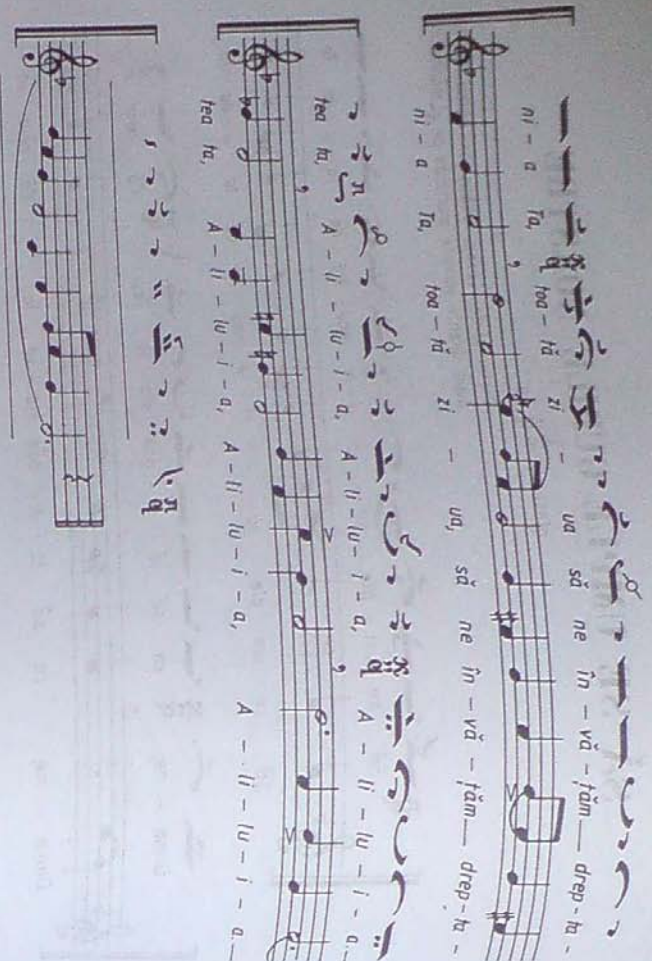 ni – a Ta, toa – tă zi – – va să ne în – vă – țăm — drep – ta –
ni – a Ta, toa – tă zi – – ua, să ne în – vă – țăm — drep – ta –
tea ta, A – li – lu – i – a, A – li – lu – i – a, A – li – lu – i – a. —
tea ta, A – li – lu – i – a, A – li – lu – i – a, A – li – lu – i – a. —